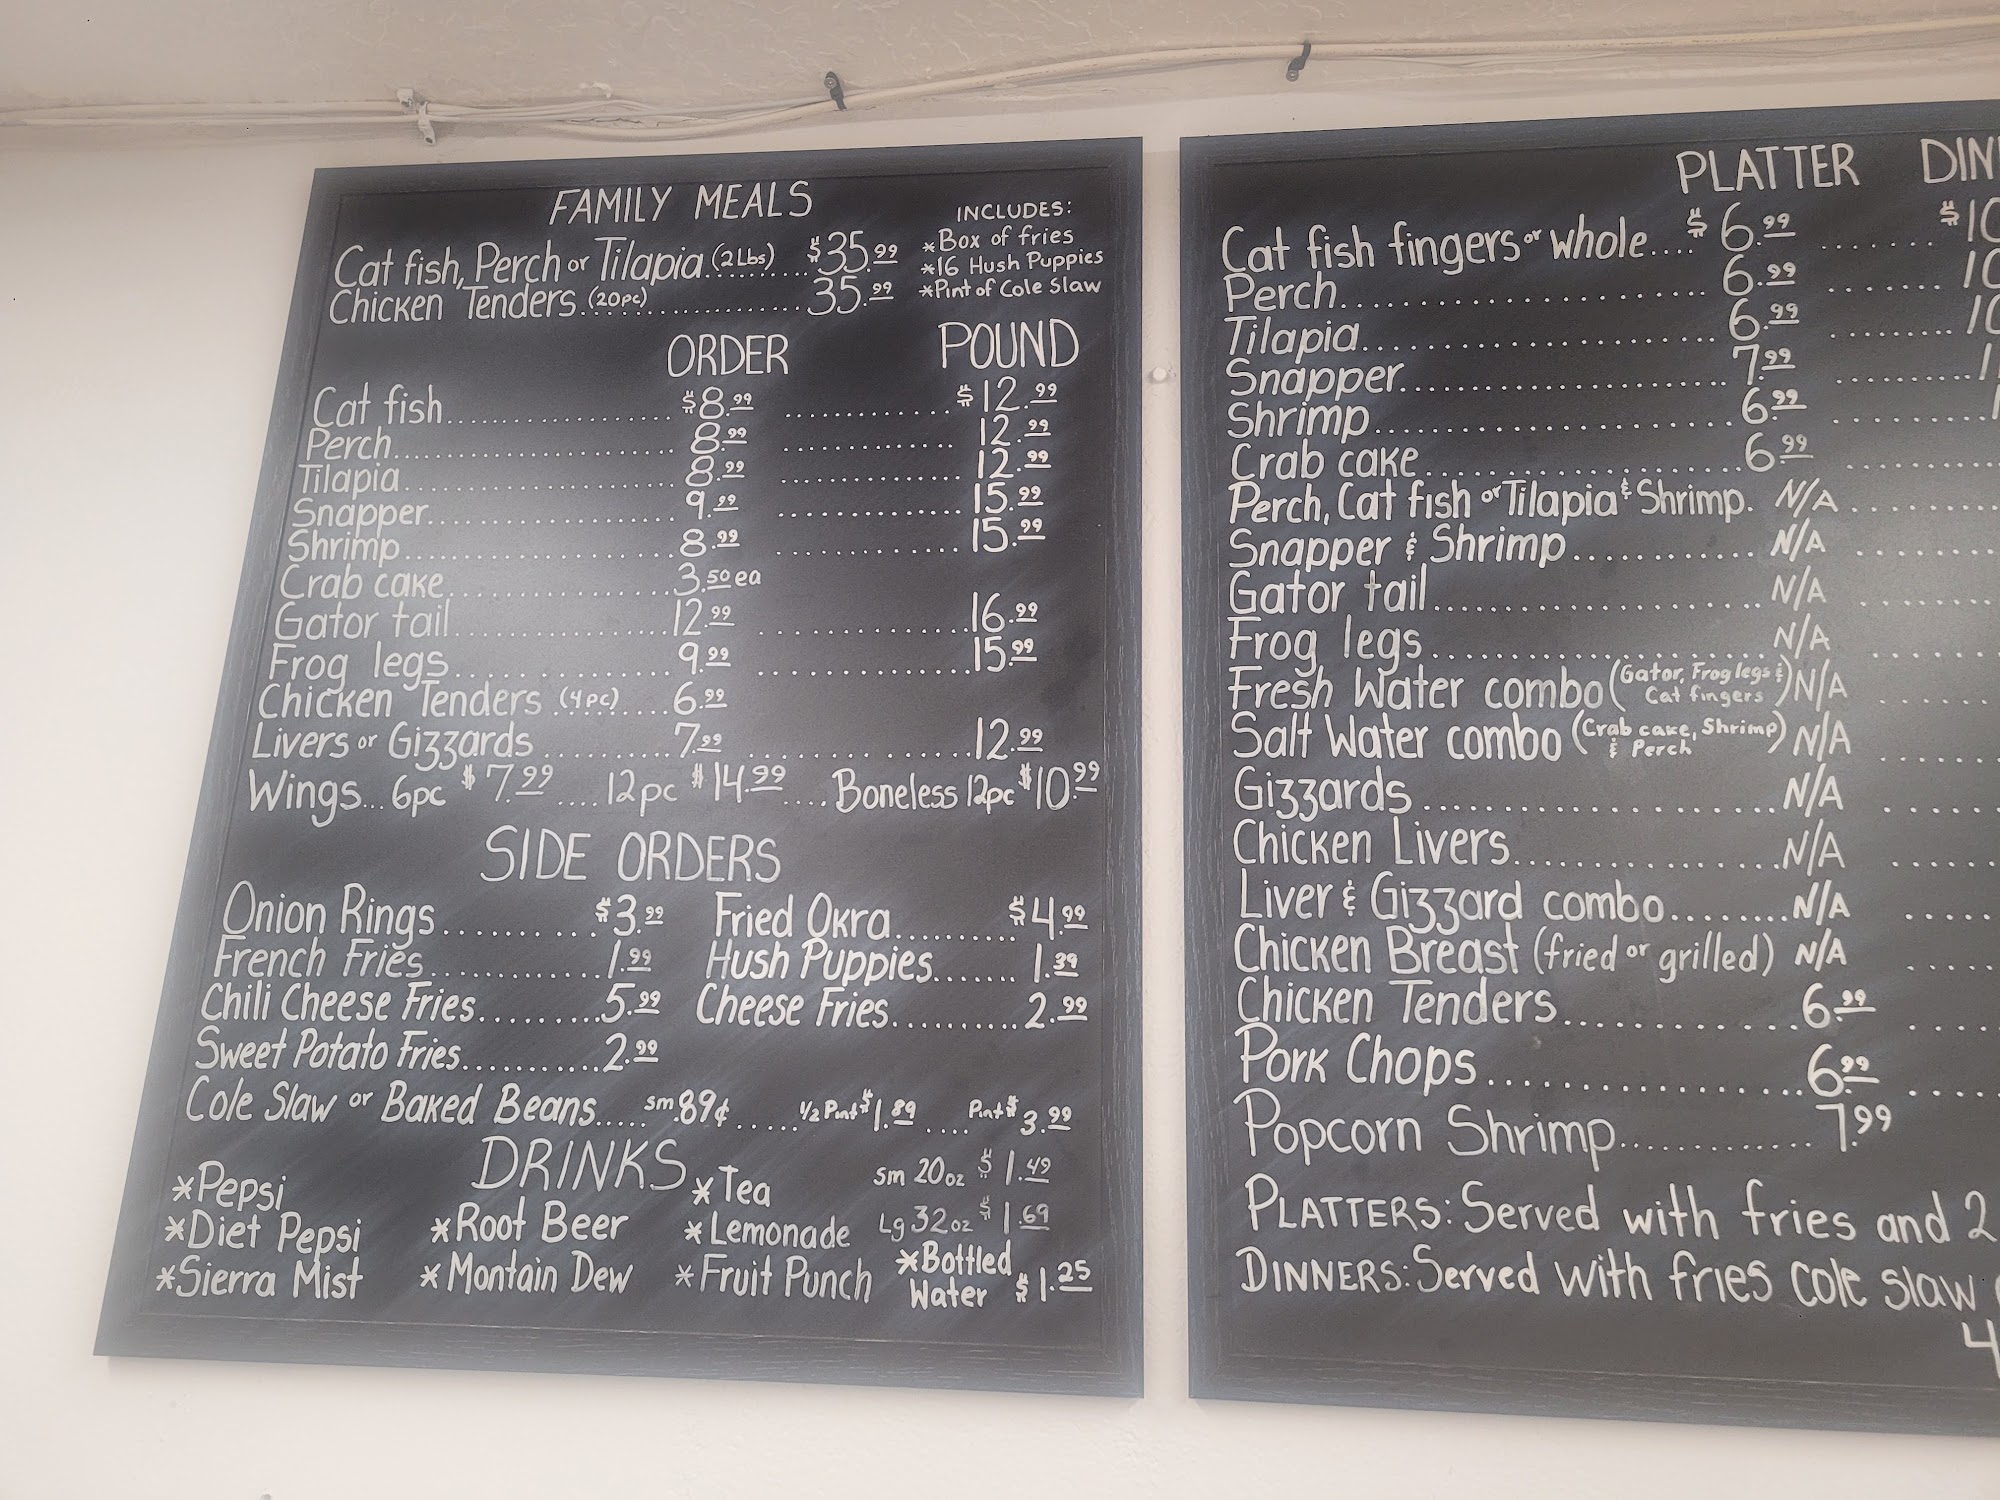 FAMILY MEALS
INCLUDES:
Cat fish, Perch or Tilapia (2 Lbs) .... $35.99
Chicken Tenders (20pc) ............. 35.99
*Box of fries
*16 Hush Puppies
*Pint of Cole Slaw
ORDER POUND
Cat fish .................... $8.99 ............ $12.99
Perch .................... 8.99 ............ 12.99
Tilapia .................... 8.99 ............ 12.99
Snapper .................... 9.99 ............ 15.99
Shrimp .................... 8.99 ............ 15.99
Crab cake .................... 3.50 ea
Gator tail .................... 12.99 ............ 16.99
Frog legs .................... 9.99 ............ 15.99
Chicken Tenders (4pc) .... 6.99
Livers or Gizzards .......... 7.99 ............ 12.99
Wings... 6pc $7.99 .... 12pc $14.99 .... Boneless 12pc $10.99
SIDE ORDERS
Onion Rings .......... $3.99 Fried Okra .......... $4.99
French Fries .......... 1.99 Hush Puppies ....... 1.39
Chili Cheese Fries ......... 5.99 Cheese Fries .......... 2.99
Sweet Potato Fries ........... 2.99
Cole Slaw or Baked Beans..... sm. 89¢ ..... 1/2 Pint $1.89 .... Pint $3.99
DRINKS
*Pepsi *Tea sm 20oz $1.49
*Diet Pepsi *Root Beer *Lemonade Lg 32oz $1.69
*Sierra Mist *Montain Dew *Fruit Punch *Bottled Water $1.25
PLATTER
Cat fish fingers or whole .... $6.99 ....... $10
Perch .................... 6.99 ....... 10
Tilapia .................... 6.99 ......... 10
Snapper .................... 7.99 ..........
Shrimp .................... 6.99 ..........
Crab cake .................... 6.99 ..........
Perch, Cat fish or Tilapia & Shrimp. N/A ........
Snapper & Shrimp ............ N/A ........
Gator tail .................... N/A ........
Frog legs .................... N/A ........
Fresh Water combo (Gator, Frog legs & Cat fingers) N/A ......
Salt Water combo (Crab cake, Shrimp & Perch) N/A ......
Gizzards .................... N/A .....
Chicken Livers .................... N/A .....
Liver & Gizzard combo ........ N/A .....
Chicken Breast (fried or grilled) N/A ....
Chicken Tenders .............. 6.99 ....
Pork Chops .................... 6.99 ....
Popcorn Shrimp ............ 7.99
PLATTERS: Served with fries and 2
DINNERS: Served with fries cole slaw
4